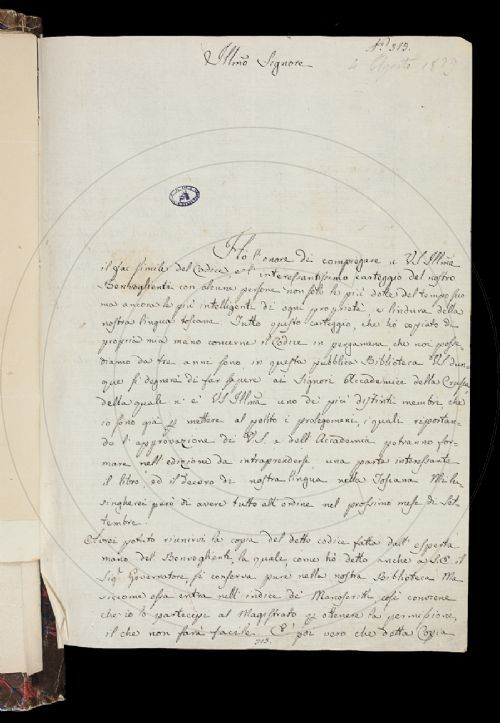 N.º 313.
4 Agosto 1823
Illmo Signore
Ho l'onore di compiegare a VS Illma
il fac simile del Codice, e l'interessantissimo carteggio del nostro
Benvoglienti con alcune persone non solo le più dotte del tempo suo
ma ancora le più intelligenti di ogni proprietà, e lindura della
nostra lingua toscana. Tutto questo carteggio, che hò copiato di
propria mia mano concerne il Codice in pergamena che noi posse-
diamo da tre anni sono in questa pubblica Biblioteca. VS dun-
que si degnerà di far sapere ai Signori Accademici della Crusca
della quale n'è VS Illma uno dei più distinti membri che
io sono già p mettere al pulito i prolegomeni, i quali reportan-
do l'approvazione di VS. e dell'Accademia potranno for-
mare nell'edizione da intraprendersi una parte interessante
il libro, ed il decoro di nostra lingua nella Toscana. Mi lu-
singherei però di avere tutto all'ordine nel prossimo mese di Set-
tembre.
potuto riunirvi la copia del detto codice fatta dall'esperta
mano del Benvoglienti, la quale, come hò detto anche a S.E. il
Sigr Governatore, si conserva pure nella nostra Biblioteca. Ma
siccome essa entra nell'indice de' Manoscritti così conviene
che io lo partecipi al Magistrato p ottenere la permissione,
il che non sarà facile. E' poi vero che detta Copia
313.